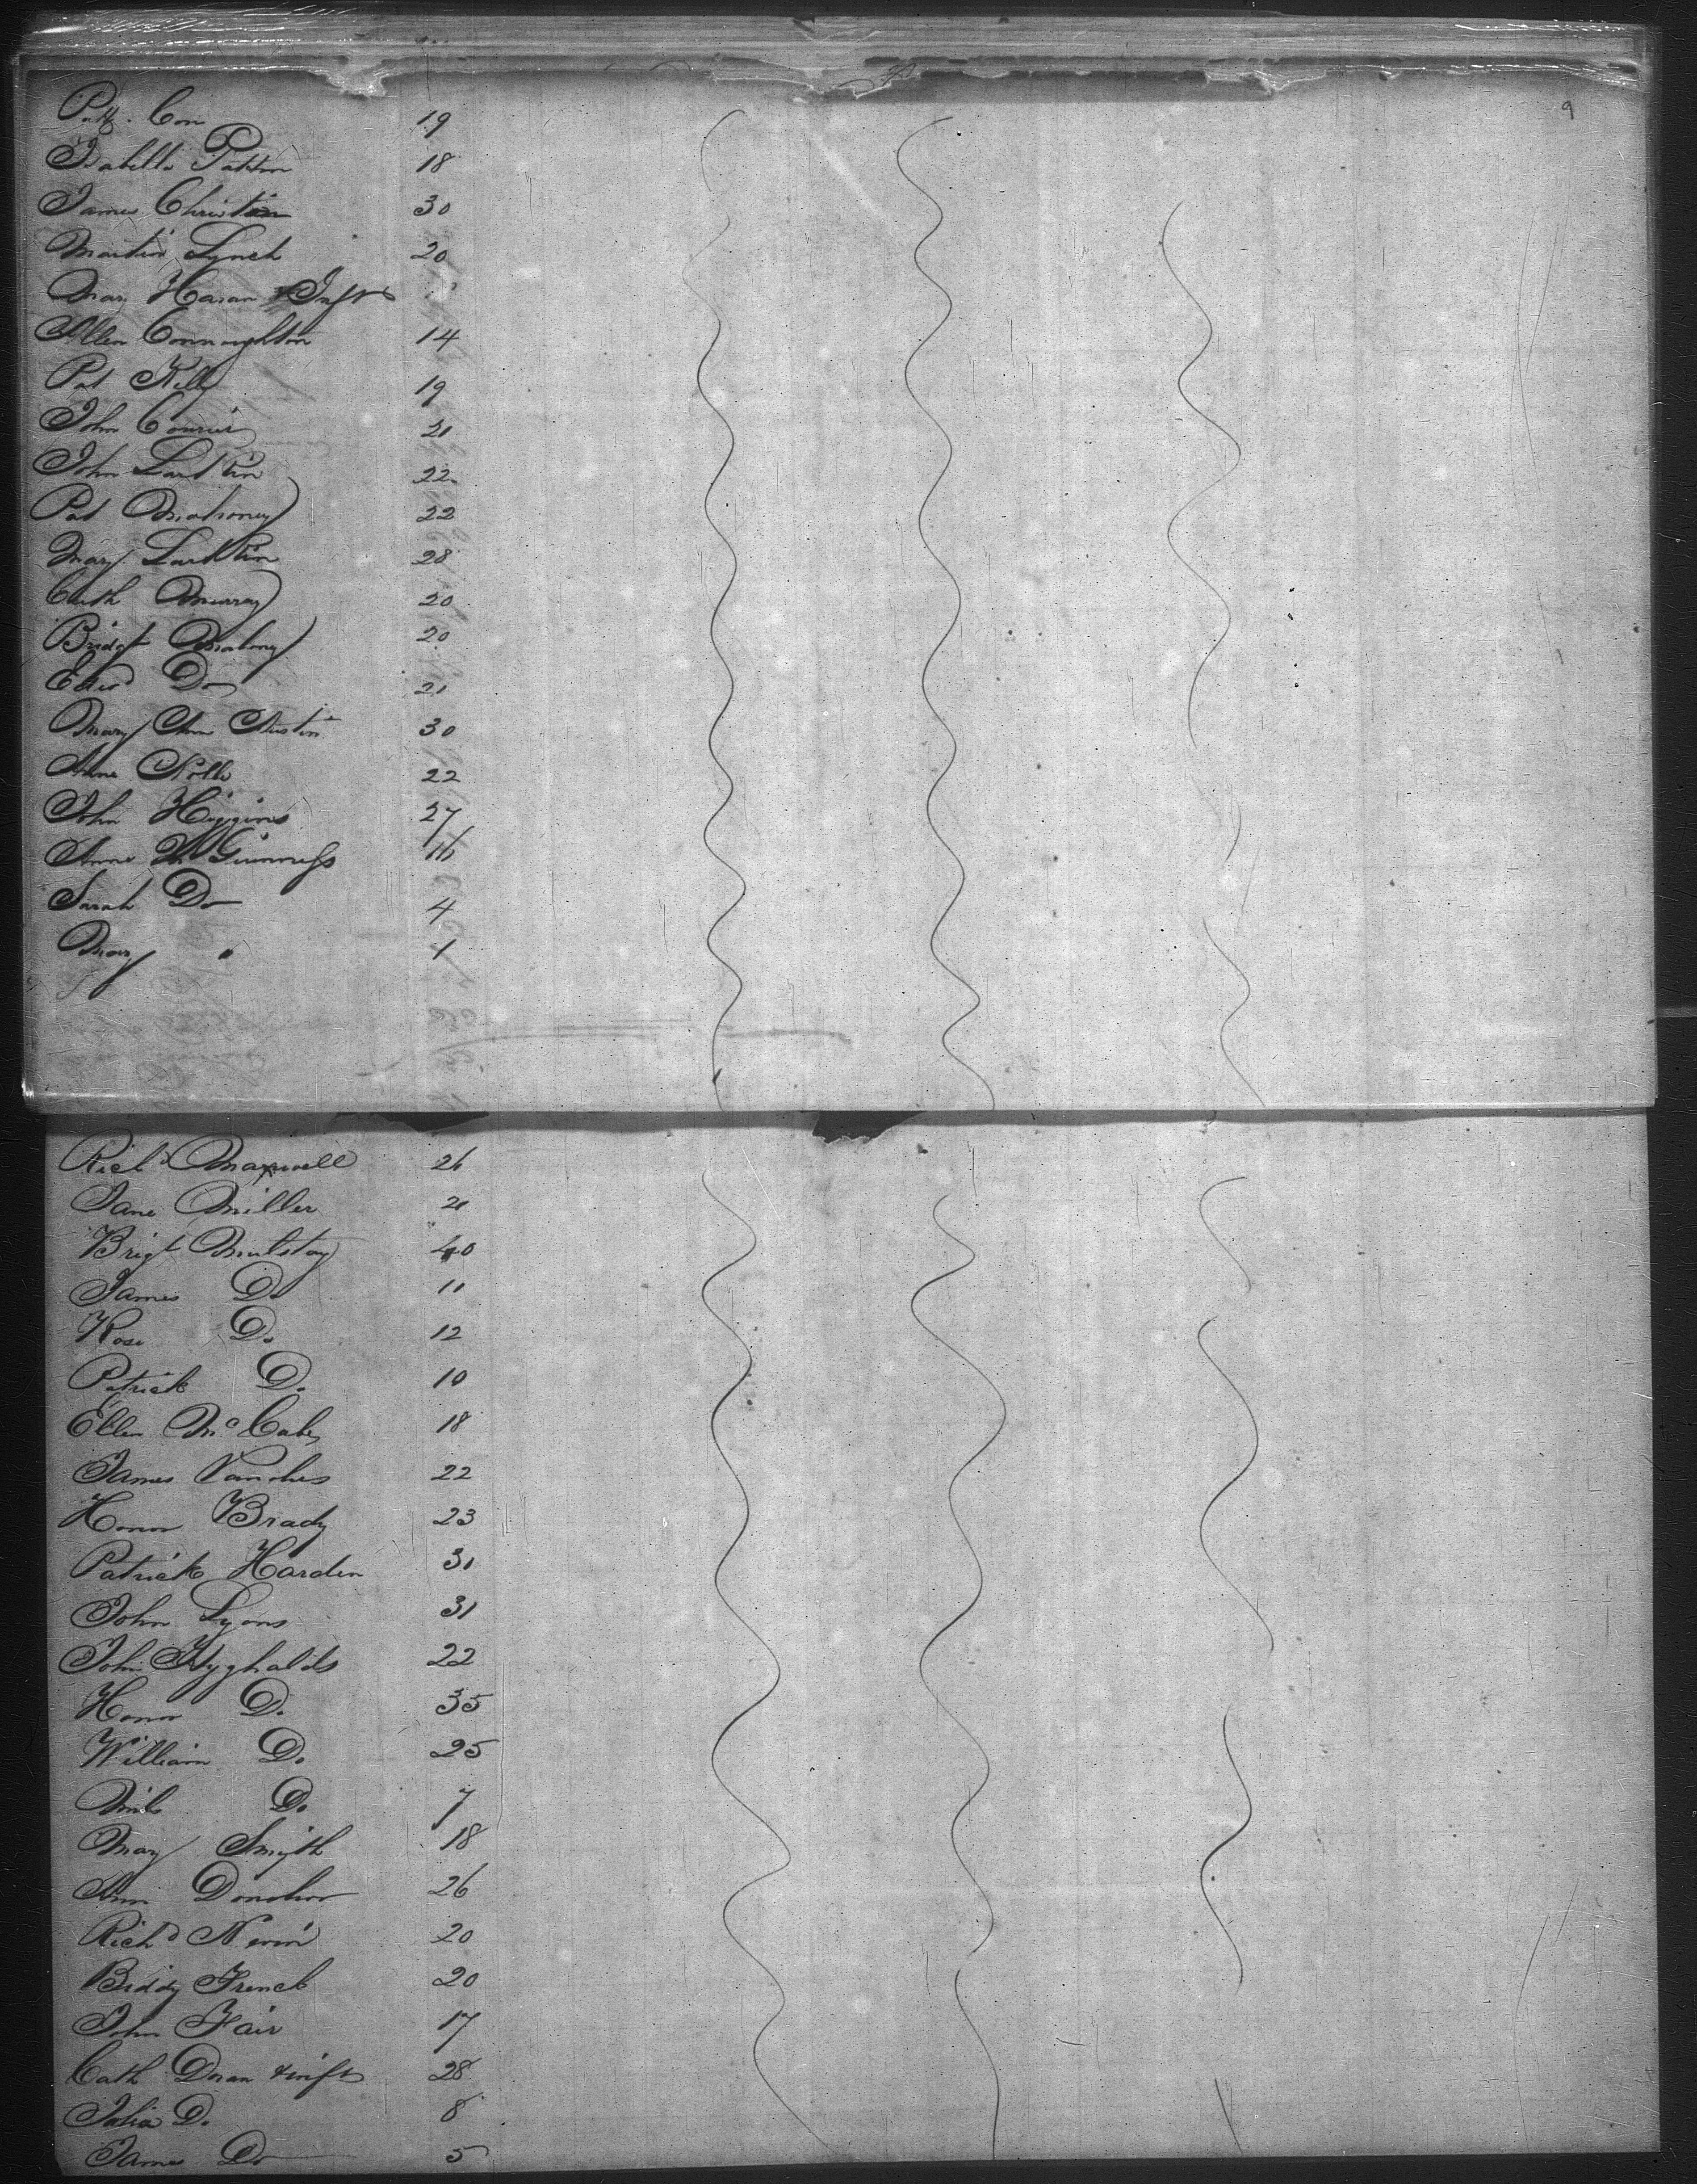 9
Patk. Con 19
Isabella Patton 18
James Christian 30
Martin Lynch 20
Mary Haran & Inft
Ellen Connaughton 14
Pat Kelly 19
John 21
John Larkin 22
Pat Mahoney 22
Mary Larkin 28
Cath Murray 20
Bridgt Mahony 20
Edwd Do 21
Mary Ann Austin 30
Anne 22
John Higgins 27
Anne McGuinness 16
Sarah Do 4
Mary " 1
Richd Maxwell 26
Jane Miller 21
Brigt 40
James Do 11
Rose Do 12
Patrick Do 10
Ellen McCabe 18
James 22
Honor Brady 23
Patrick Harden 31
John Lyons 31
John 22
Honor Do 35
William Do 25
Do 7
Mary Smyth 18
Ann Donohoe 26
Richd Nevin 20
Biddy French 20
John Fair 17
Cath Doran & inft 28
Julia Do 8
James Do 5